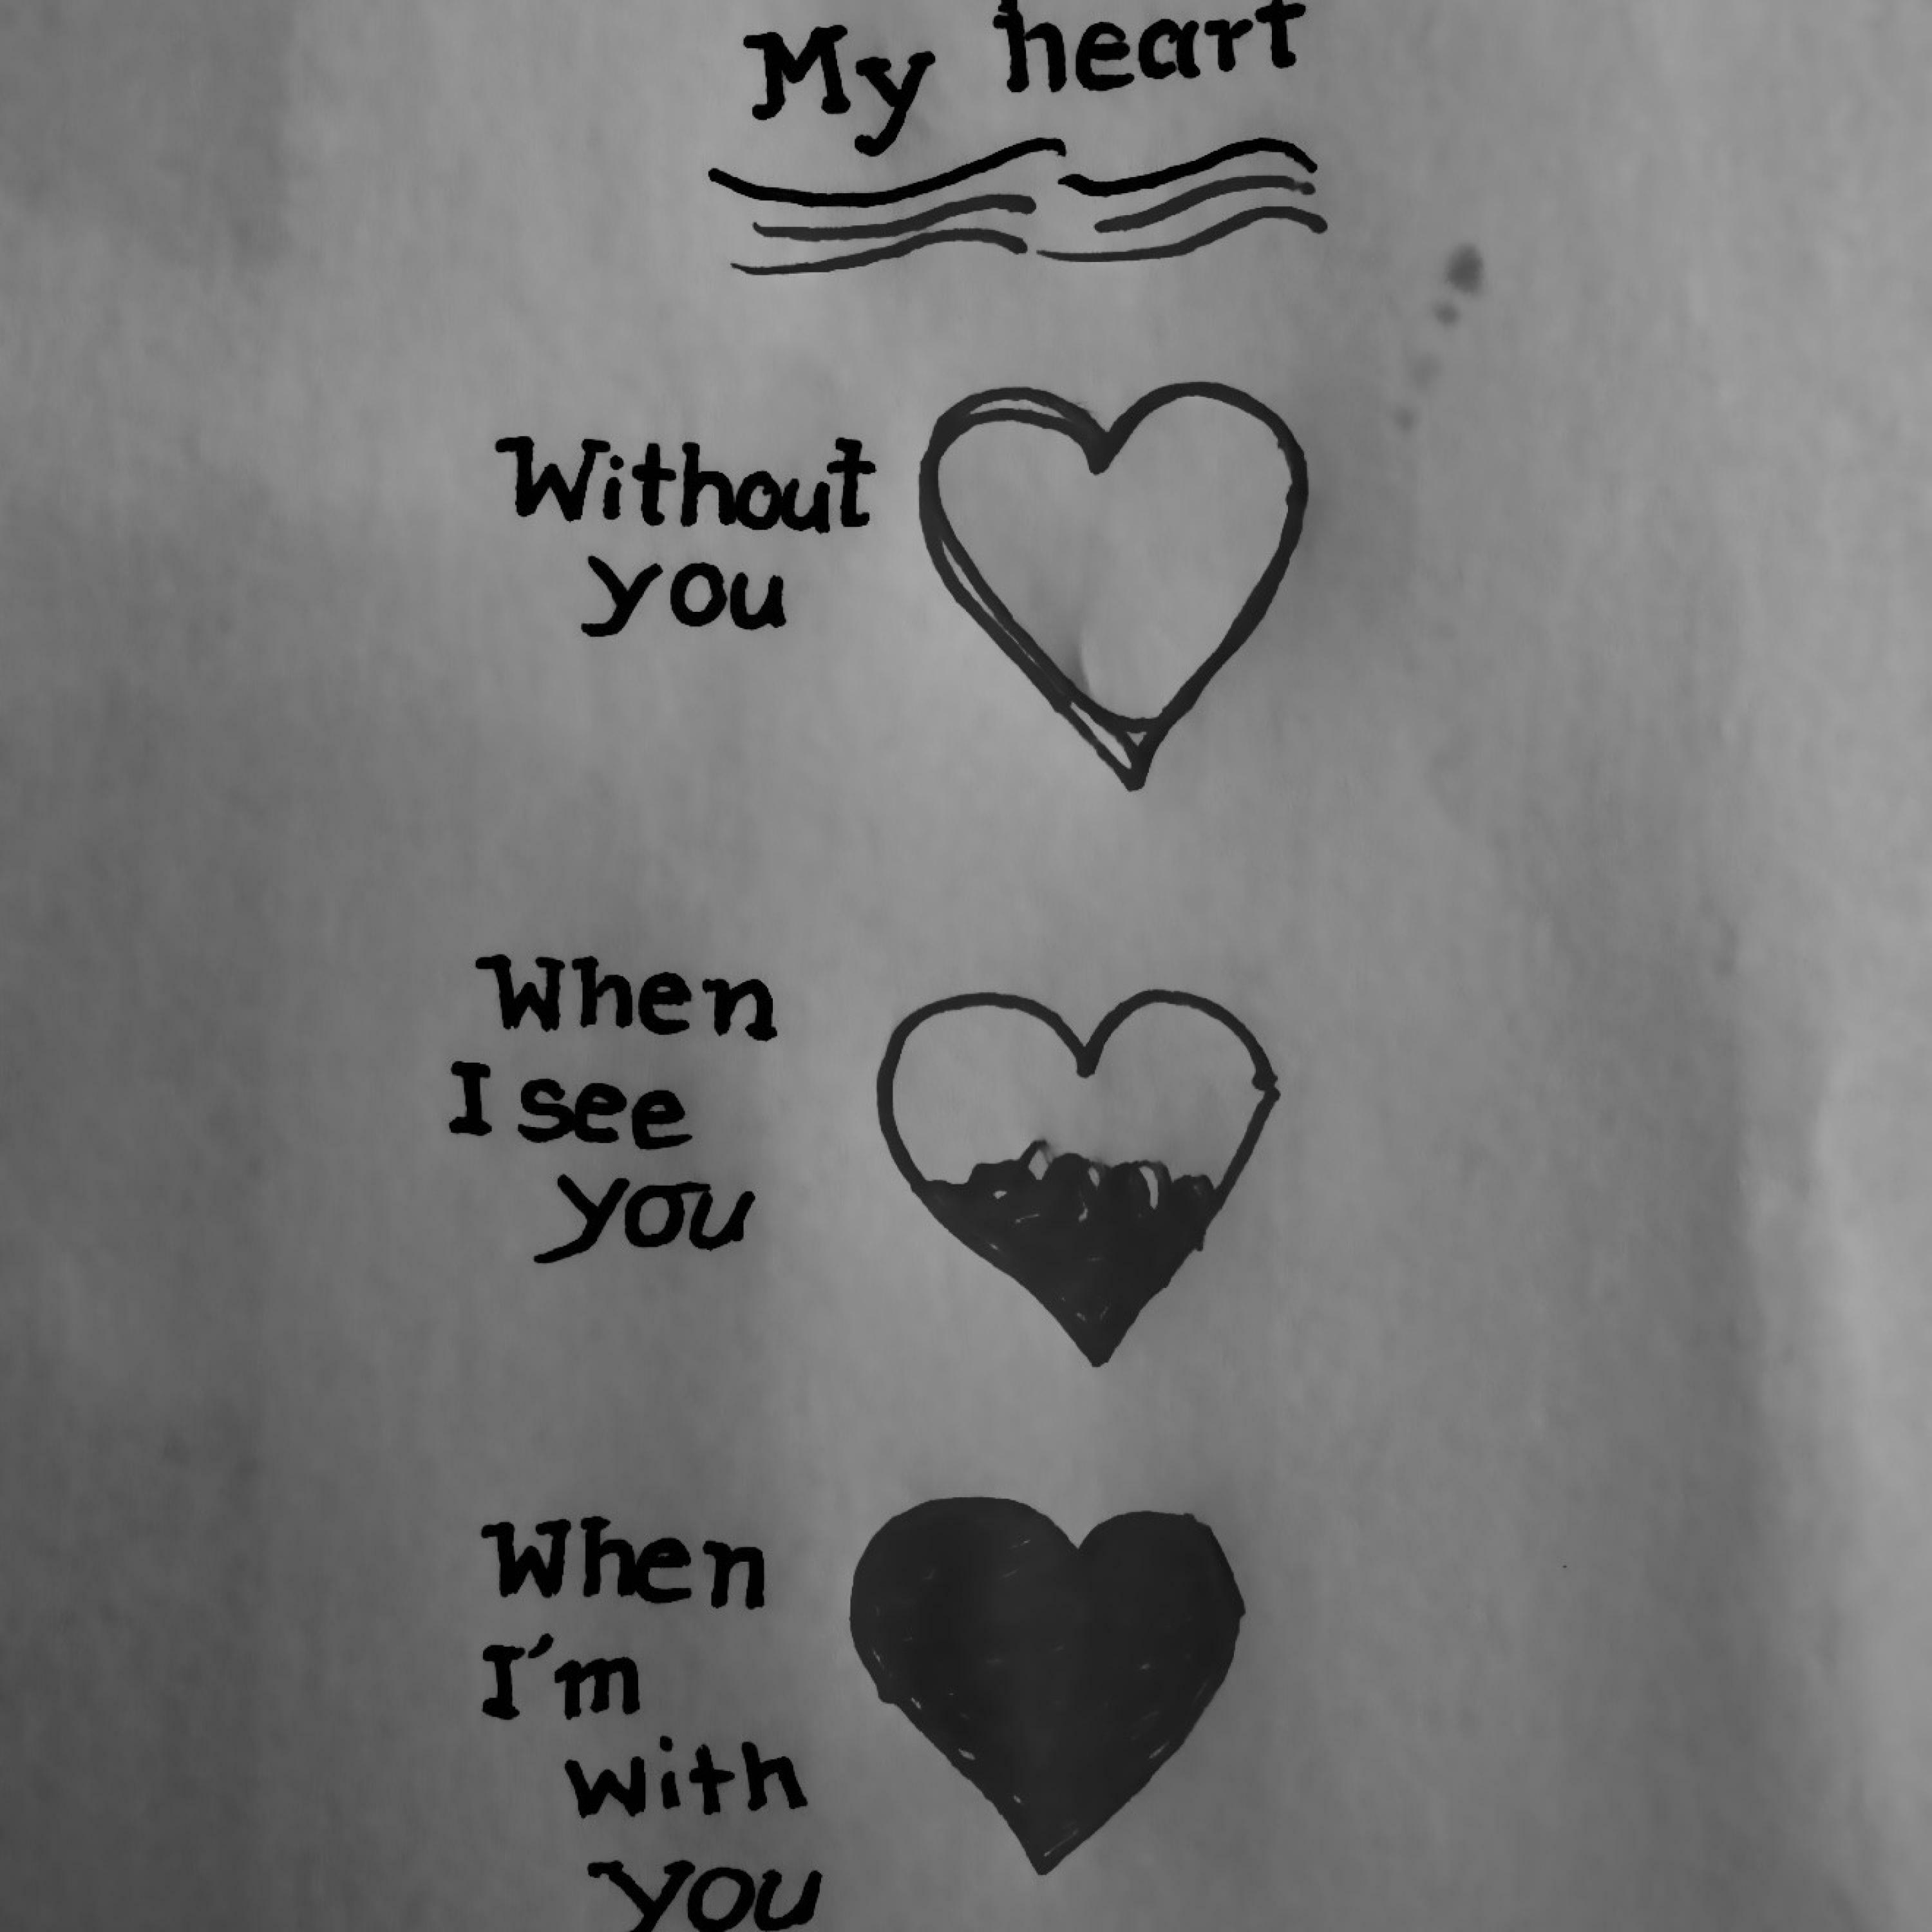 My heart
Without
you
When
I see
you
When
I'm
with
you